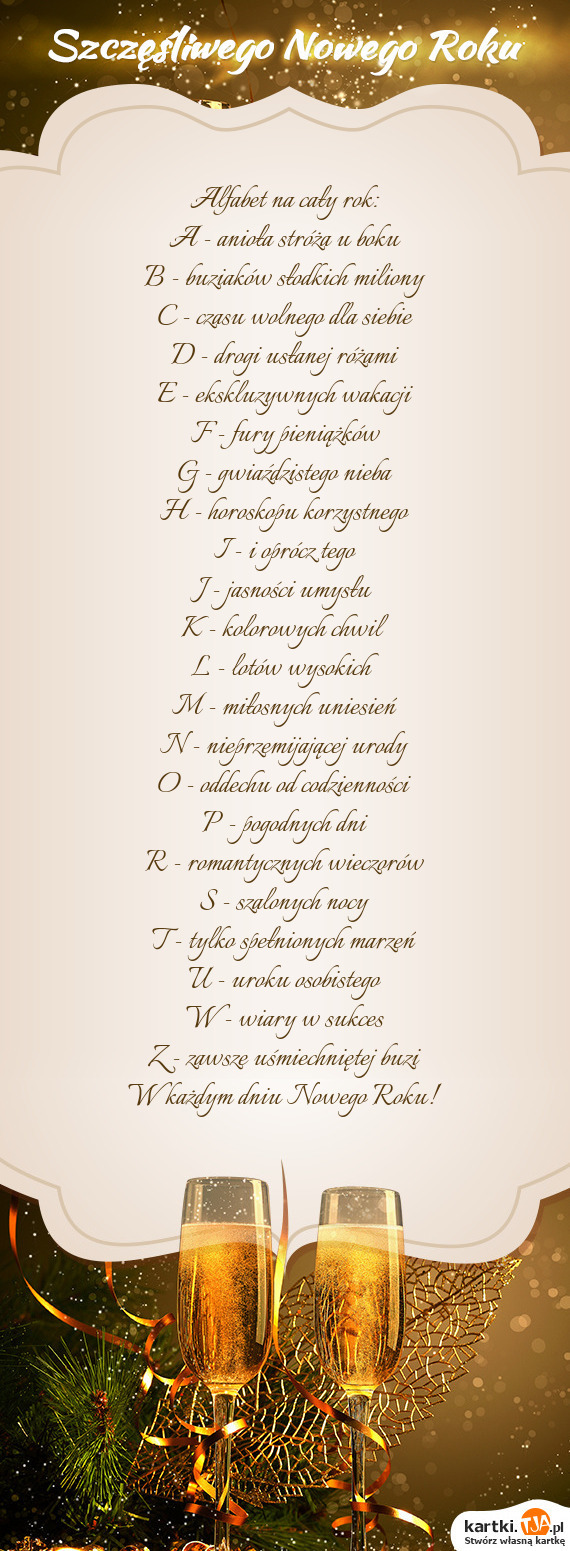 Szczęśliwego Nowego Roku
Alfabet na cały rok:
A - anioła stróża u boku
B - buziaków słodkich miliony
C - czasu wolnego dla siebie
D - drogi usłanej różami
E - ekskluzywnych wakacji
F - fury pieniążków
G - gwiaździstego nieba
H - horoskopu korzystnego
I - i oprócz tego
J - jasności umysłu
K - kolorowych chwil
L - lotów wysokich
M - miłosnych uniesień
N - nieprzemijającej urody
O - oddechu od codzienności
P - pogodnych dni
R - romantycznych wieczorów
S - szalonych nocy
T - tylko spełnionych marzeń
U - uroku osobistego
W - wiary w sukces
Z - zawsze uśmiechniętej buzi
W każdym dniu Nowego Roku!
kartki.TJA.pl
Stwórz własną kartkę